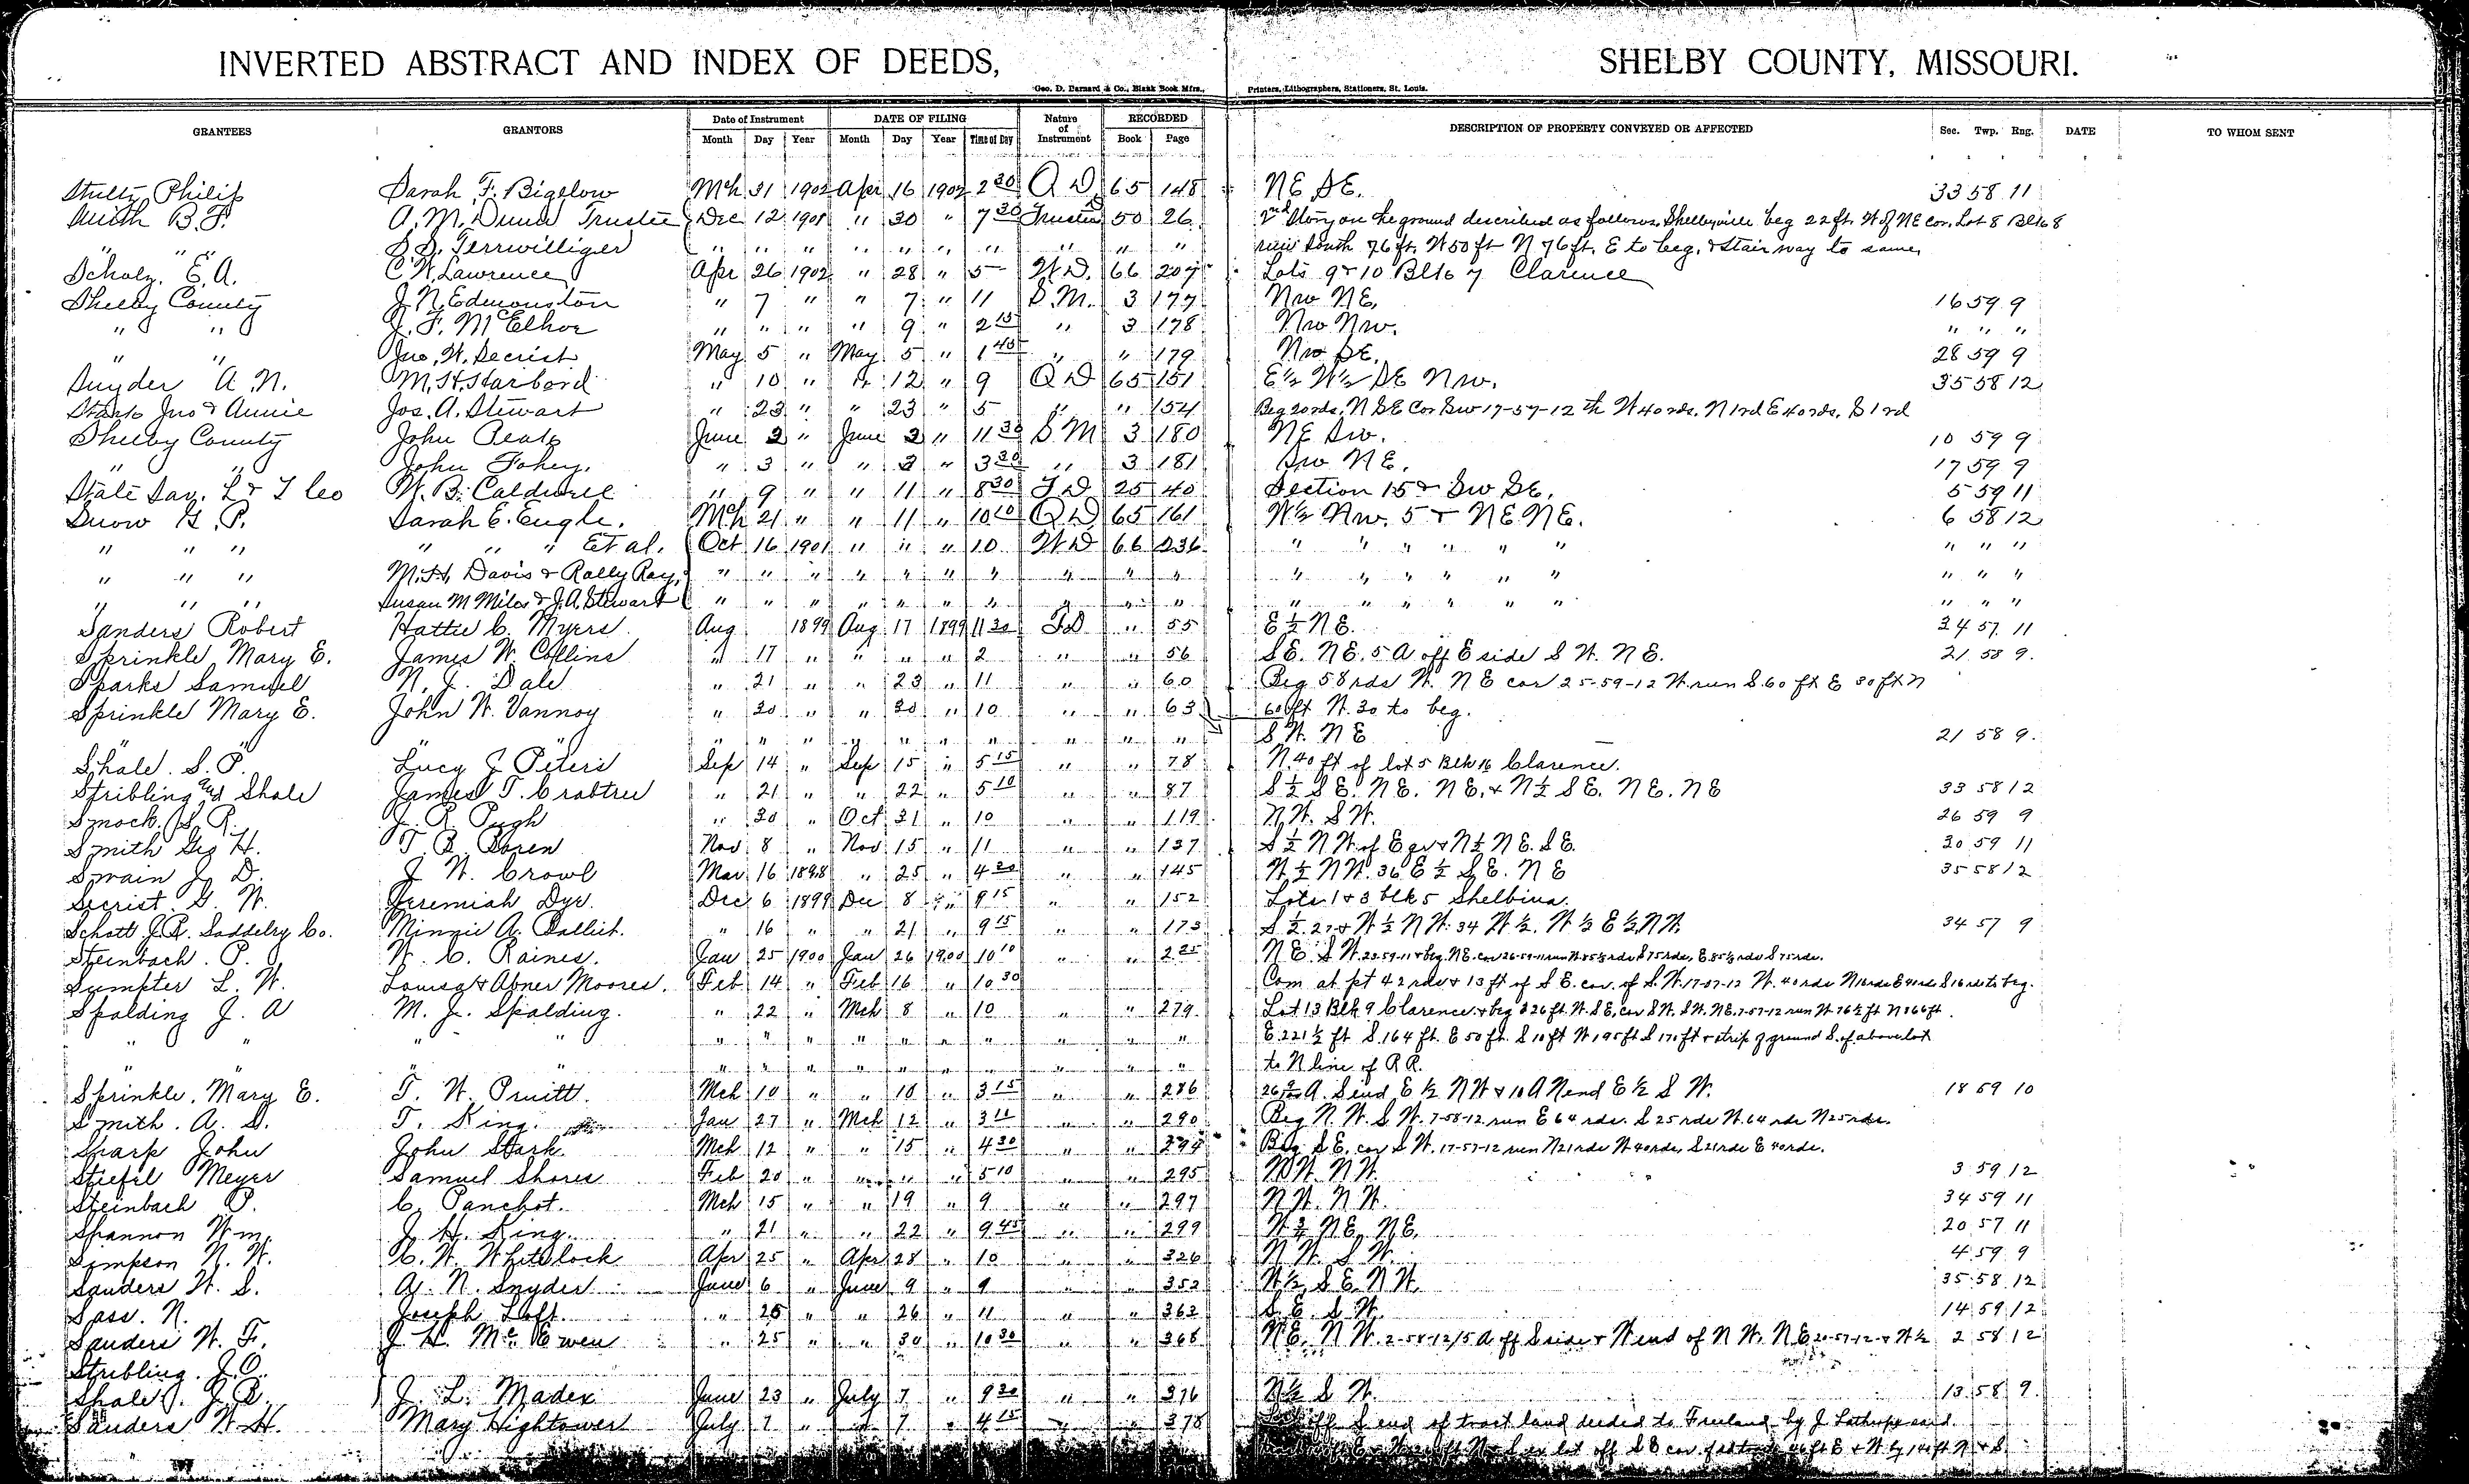 INVERTED ABSTRACT AND INDEX OF DEEDS, SHELBY COUNTY, MISSOURI.
Geo. D. Barnard & Co., Blank Book Mfrs., Printers, Lithographers, Stationers, St. Louis.
GRANTEES GRANTORS Date of Instrument DATE OF FILING Nature of Instrument RECORDED DESCRIPTION OF PROPERTY CONVEYED OR AFFECTED Sec. Twp. Rng. DATE TO WHOM SENT
Month Day Year Month Day Year Time of Day Book Page
Philip Sarah F. Bigelow Mch 31 1902 Apr 16 1902 2 30 Q D 65 148 NE SE. 33 58 11
B. F. A. M. Dunn Trustee Dec 12 1901 " 30 " 7 30 Trustee 50 26 2nd Story on the ground described as follows. Shelbyville beg 22 ft. W of NE cor. Lot 8 Blk 8
" " " S. S. Terrwilliger " " " " " " " " " " run South 76 ft. W 50 ft N 76 ft. E to beg. & Stair way to same.
Scholz. E. A. C. W. Lawrence Apr 26 1902 " 28 " 5 W D. 66 207 Lots 9 & 10 Blk 7 Clarence
Shelby County J. N. Edmonston " 7 " " 7 " 11 S. M. 3 177 Nw NE. 16 59 9
" " J. F. McElhoe " " " " 9 " 2 15 " 3 178 Nw Nw. " " "
" " Jno. W. Secrist May 5 " May 5 " 1 45 " " 179 Nw SE. 28 59 9
Snyder A. N. M. H. Starbord " 10 " " 12 " 9 Q D 65 151 E½ W½ SE Nw. 35 58 12
Stark Jno & Annie Jos. A. Stewart " 23 " " 23 " 5 " " 154 Beg 20 rds. N SE Cor Sw 17-57-12 th W 40 rds. N 1rd E 40 rds. S 1rd
Shelby County John Peak June 2 " June 2 " 11 30 S M 3 180 NE Sw. 10 59 9
" " John Fohey. " 3 " " 3 " 3 30 " 3 181 Sw NE. 17 59 9
State Sav. L & T Co W. B. Caldwell " 9 " " 11 " 8 30 T D 25 40 Section 15 & Sw SE. 5 59 11
Snow G. P. Sarah E. Engle. Mch 21 " " 11 " 10 10 Q D 65 161 W½ Nw. 5 & NE NE. 6 58 12
" " " " " " Et al. Oct 16 1901 " " " 10 W D 66 236 " " " " " " " " "
" " " M. H. Davis & Rally Ray, " " " " " " " " " " " " " " " " " " "
" " " Susan M Miles & J. A. Stewart " " " " " " " " " " " " " " " " " " "
Sanders Robert Hattie C. Myers Aug 1899 Aug 17 1899 11 30 T D " 55 E ½ NE. 34 57 11
Sprinkle Mary E. James W. Collins " 17 " " " " 2 " " 56 SE. NE. 5 A off E side S W. N E. 21 58 9.
Sparks Samuel N. J. Dale " 21 " " 23 " 11 " " 60 Beg 58 rds W. N E cor 25-59-12 W. run S. 60 ft E 30 ft N
Sprinkle Mary E. John W. Vannoy " 30 " " 30 " 10 " " 63 60 ft W. 30 to beg.
" " " " " " " " " " " " S W. N E 21 58 9.
Shale. S. P. Lucy J Peters Sep 14 " Sep 15 " 5 15 " " 78 N. 40 ft of lot 5 Blk 16 Clarence.
Stribling and Shale James T. Crabtree " 21 " " 22 " 5 10 " " 87 S ½ S E. N E. N E. & N ½ S E. N E. N E 33 58 12
Smock. R. J. R. Pugh " 30 " Oct 31 " 10 " " 119 N W. S W. 26 59 9
Smith Geo H. T. B. Boren Nov 8 " Nov 15 " 11 " " 137 S ½ N W. of E qr & N ½ N E. S E. 30 59 11
Swain J. D. J. W. Crowl Mar 16 1898 " 25 " 4 30 " " 145 W ½ N W. 36 E ½ S E. N E 35 58 12
Secrist. G. W. Jeremiah Dye. Dec 6 1899 Dec 8 " 9 15 " " 152 Lots 1 & 3 blk 5 Shelbina.
Schott J. R. Saddelry Co. Minnie A. " 16 " " 21 " 9 15 " " 173 S ½. 27 & W ½ N W. 34 W ½. W ½ E ½ N W. 34 57 9
Steinbach. P. W. C. Raines. Jan 25 1900 Jan 26 1900 10 10 " " 225 N E. S W. 23-59-11 & beg. N E. cor 26-59-11 run W 85⅓ rds S 75 rds. E. 85⅓ rds S 75 rds.
Sumpter L. W. Louisa & Abner Moores. Feb 14 " Feb 16 " 10 30 Com at pt 42 rds & 13 ft of S E. cor. of S. W. 17-57-12 W. 40 rds N 16 rds E 40 rds S 16 rds to beg.
Spalding J. A M. J. Spalding. " 22 " Mch 8 " 10 " " 279 Lot 13 Blk 9 Clarence & beg 326 ft. W. S E. cor S W. S W. N E. 7-57-12 run W 76½ ft N 166 ft
" " " " " " " " " " " " " " E. 221½ ft S. 164 ft. E 50 ft. S 10 ft W 195 ft S 170 ft & strip of ground S. of above lot
" " " " " " " " " " " " to N line of R R.
Sprinkle. Mary E. T. W. Pruitt. Mch 10 " " 10 " 3 15 " " 286 A. S end E ½ N W & 10 A N end E ½ S W. 18 59 10
Smith. A. S. T. King. Jan 27 " Mch 12 " 3 " " 290 Beg N. W. S W. 7-58-12 run E 64 rds. S 25 rds W. 64 rds N 25 rds.
Sharp John John Stark. Mch 12 " " 15 " 4 30 " " Beg S E. cor S W. 17-57-12 run N 21 rds W 40 rds, S 21 rds E 40 rds.
Stiefel Meyer Samuel Shores Feb 20 " " " " 5 10 " " 295 N W. N W. 3 59 12
Steinbach P. C. Panchot. Mch 15 " " 19 " 9 " " 297 N W. N W. 34 59 11
Shannon Wm. J. H. King. " 21 " " 22 " 9 45 " " 299 W ½ N E. N E. 20 57 11
Simpson N. W. C. W. Whitelock Apr 25 " Apr 28 " 10 " " 326 N W. S W. 4 59 9
Sanders W. S. A. N. Snyder June 6 " June 9 " 9 " " 352 W ½ S E. N W. 35 58 12
Sass. N. Joseph Loft. " 25 " " 26 " 11 " " 363 S. E. S W. 14 59 12
Sanders W. F. J. H. McEwen " 25 " " 30 " 10 30 " " 368 N E. N W. 2-58-12 15 A off S side & W end of N W. N E 20-57-12 & W ½ 2 58 12
Stribling. J. O.
Shale. J. R. J. L. Madex June 23 " July 7 " 9 30 " " 376 N ½ S W. 13 58 9.
Sanders W. H. Mary Hightower July 7 " " 7 " 4 15 " " 378 off S end of tract land deeded to Freeland by J Lathrop
lot off S E cor. of 46 ft E & W by 141 ft N & S.